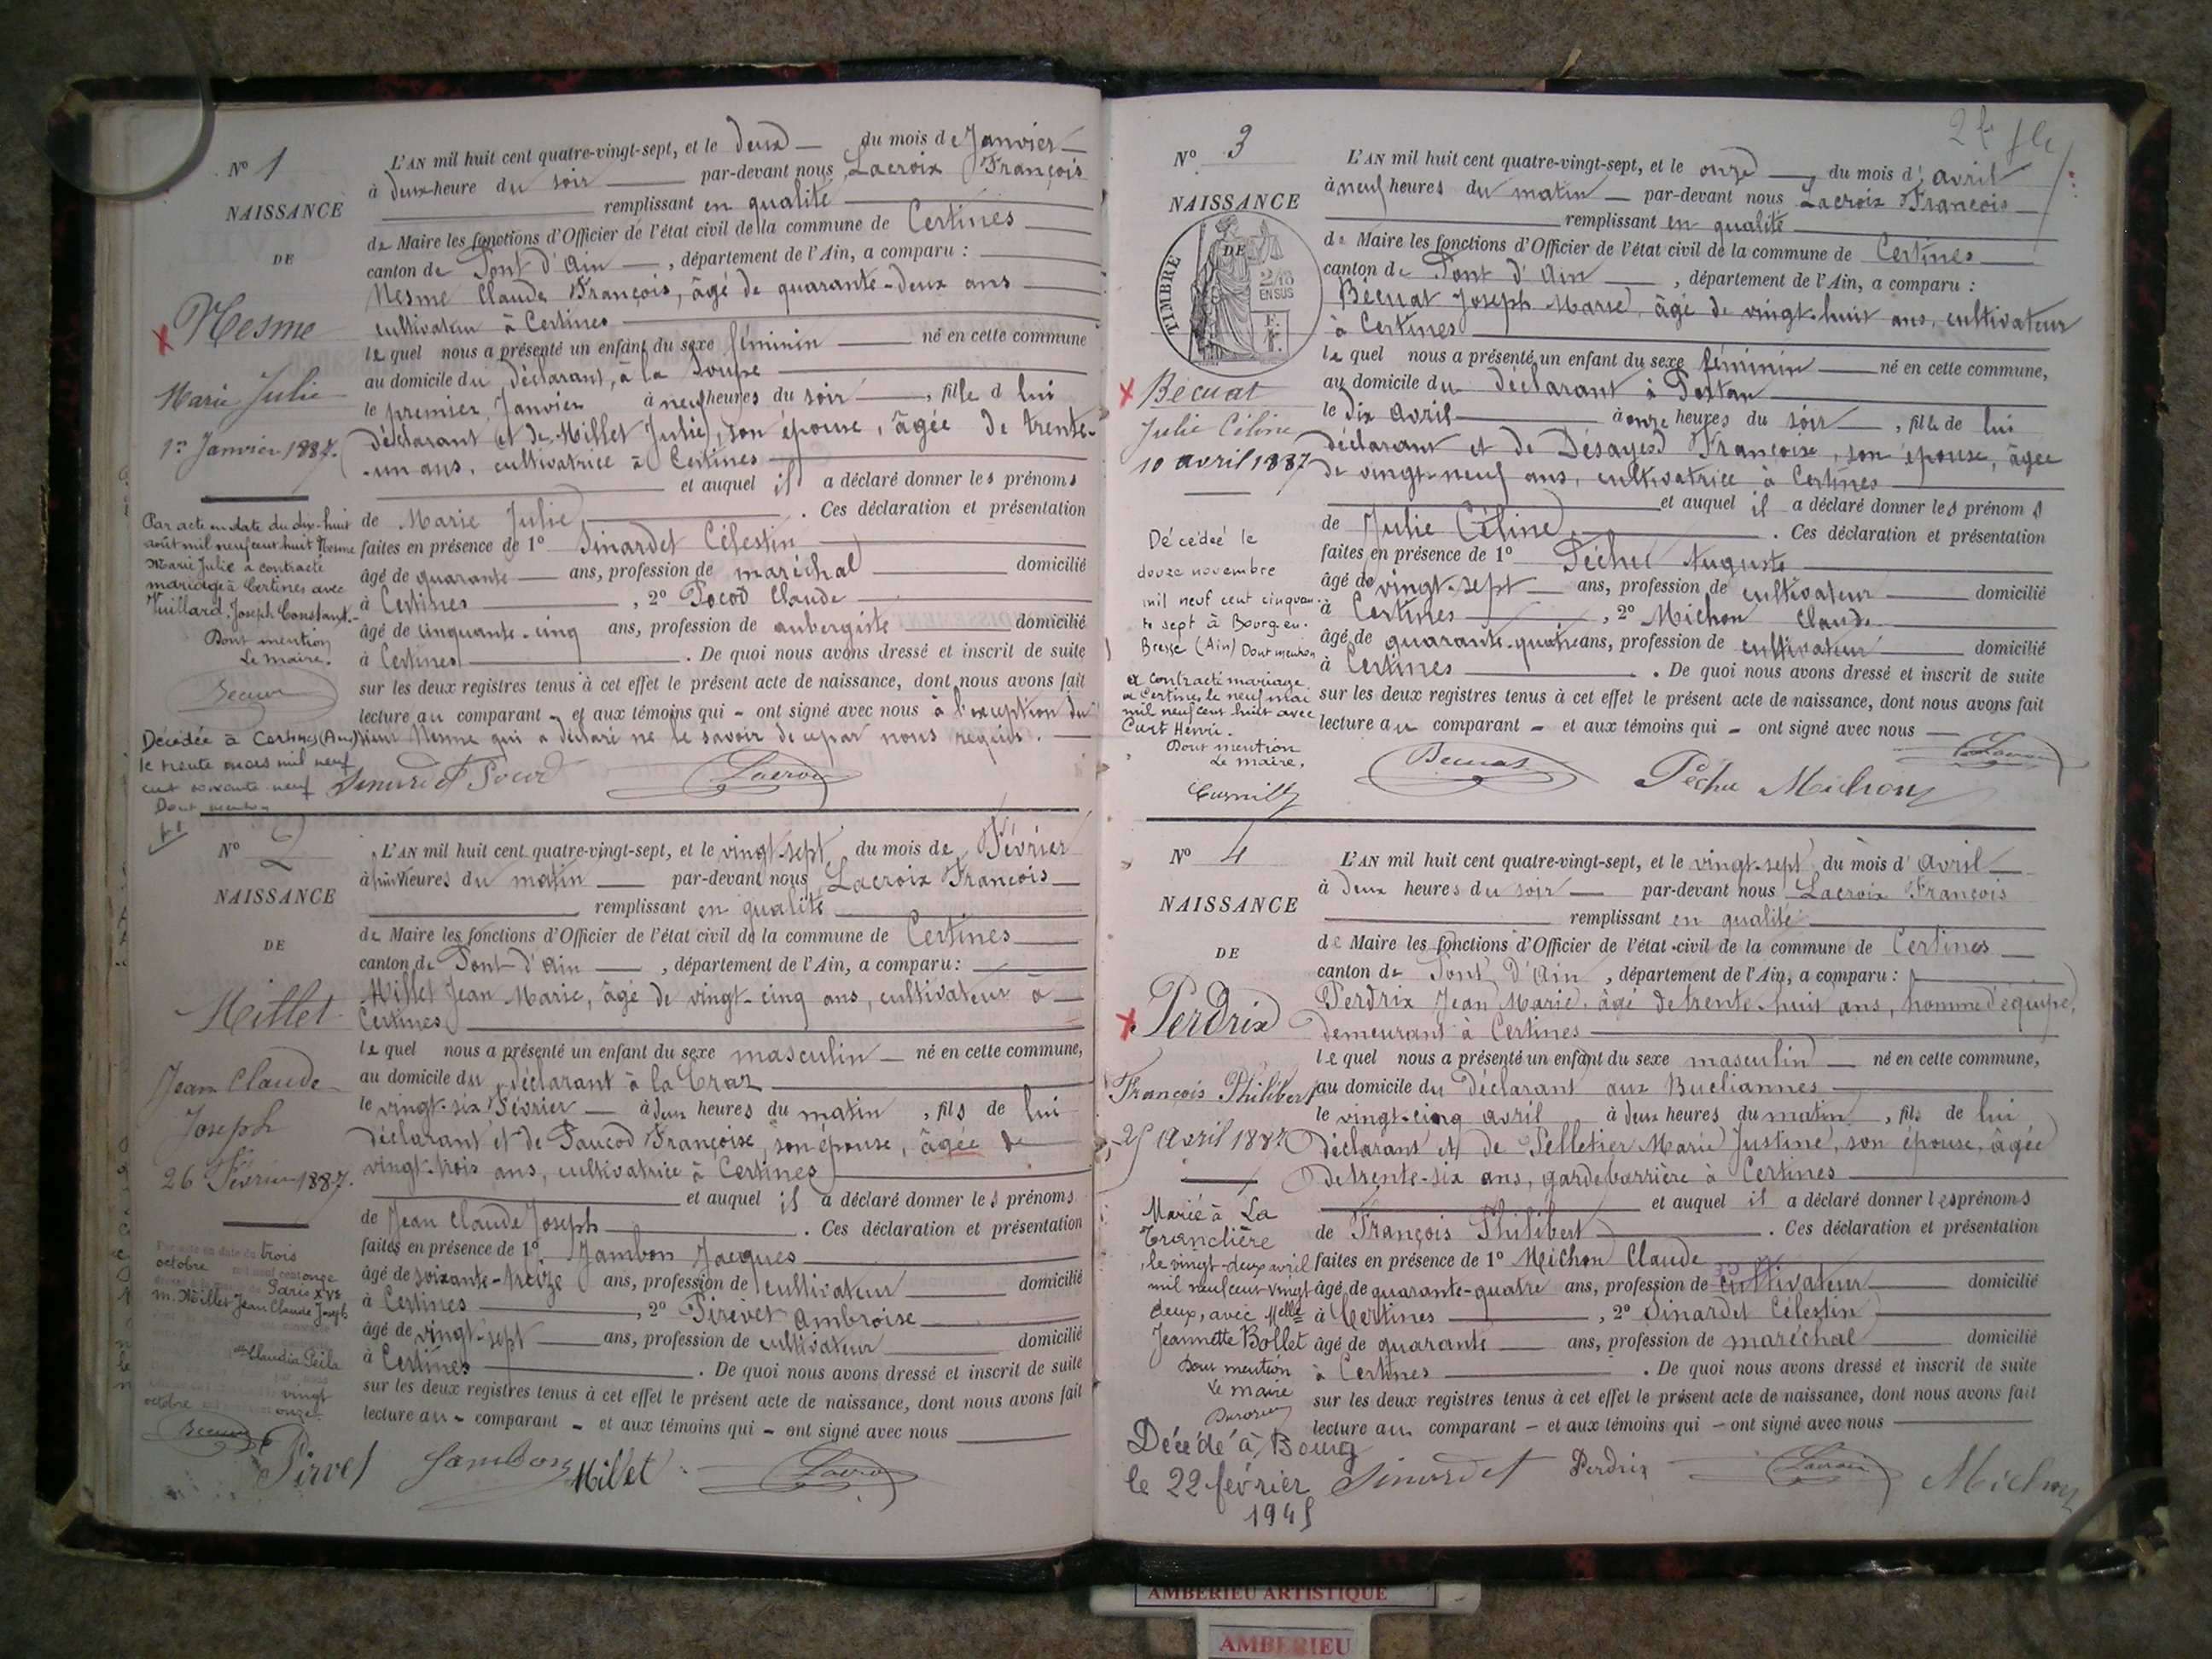 N° 1
NAISSANCE
DE
Nesme
Marie Julie
1er Janvier 1887.
Par acte en date du dix-huit
août mil neuf cent huit Nesme
Marie Julie a contracté
mariage à Certines avec
Vuillard, Joseph Constant.-
Dont mention
Le maire.
Décédée à Certines (Ain)
le trente mars mil neuf
cent soixante neuf
Dont mention
L'AN mil huit cent quatre-vingt-sept, et le deux du mois de Janvier
à deux heure du soir par-devant nous Lacroix François
remplissant en qualité
de Maire les fonctions d'Officier de l'état civil de la commune de Certines
canton de Pont d'Ain, département de l'Ain, a comparu :
Nesme Claude François, âgé de quarante-deux ans
cultivateur à Certines
lequel nous a présenté un enfant du sexe féminin né en cette commune
au domicile du déclarant, à la
le premier Janvier à neuf heures du soir, fille d lui
déclarant et de Millet Julie, son épouse, âgée de trente-
-un ans, cultivatrice à Certines
et auquel il a déclaré donner les prénoms
de Marie Julie. Ces déclaration et présentation
faites en présence de 1° Sinardet Célestin
âgé de quarante ans, profession de maréchal domicilié
à Certines, 2° Pocod Claude
âgé de cinquante-cinq ans, profession de aubergiste domicilié
à Certines. De quoi nous avons dressé et inscrit de suite
sur les deux registres tenus à cet effet le présent acte de naissance, dont nous avons fait
lecture au comparant - et aux témoins qui - ont signé avec nous à l'exception du
sieur Nesme qui a déclaré ne le savoir de ce par nous requis.
Sinardet Pocod Lacroix
N° 2
NAISSANCE
DE
Millet
Jean Claude
Joseph
26 Février 1887.
trois
octobre onze
Paris XVe
M. Millet Jean Claude Joseph
Claudia
vingt
octobre onze
L'AN mil huit cent quatre-vingt-sept, et le vingt-sept du mois de Février
à huit heures du matin par-devant nous Lacroix François
remplissant en qualité
de Maire les fonctions d'Officier de l'état civil de la commune de Certines
canton de Pont-d'Ain, département de l'Ain, a comparu :
Millet Jean Marie, âgé de vingt-cinq ans, cultivateur à
Certines
lequel nous a présenté un enfant du sexe masculin né en cette commune,
au domicile du déclarant à la Craz
le vingt-six Février à deux heures du matin, fils de lui
déclarant et de Paucod Françoise, son épouse, âgée de
vingt-trois ans, cultivatrice à Certines
et auquel il a déclaré donner les prénoms
de Jean Claude Joseph. Ces déclaration et présentation
faites en présence de 1° Jambon Jacques
âgé de soixante-treize ans, profession de cultivateur domicilié
à Certines, 2° Pirevet Ambroise
âgé de vingt-sept ans, profession de cultivateur domicilié
à Certines. De quoi nous avons dressé et inscrit de suite
sur les deux registres tenus à cet effet le présent acte de naissance, dont nous avons fait
lecture au - comparant - et aux témoins qui - ont signé avec nous
Pirvet Jambon Millet Lacroix
N° 3
NAISSANCE
DE
TIMBRE
2/10
EN SUS
Bécuat
Julie Céline
10 avril 1887
Décédée le
douze novembre
mil neuf cent cinquan-
te sept à Bourg-en-
Bresse (Ain) Dont mention
a contracté mariage
à Certines le neuf mai
mil neuf cent huit avec
Curt Henri.
Dont mention
Le maire,
L'AN mil huit cent quatre-vingt-sept, et le onze, du mois d'avril
à neuf heures du matin par-devant nous Lacroix François
remplissant en qualité
de Maire les fonctions d'Officier de l'état civil de la commune de Certines
canton de Pont d'Ain, département de l'Ain, a comparu :
Bécuat Joseph Marie, âgé de vingt-huit ans, cultivateur
à Certines
lequel nous a présenté un enfant du sexe féminin né en cette commune,
au domicile du déclarant à
le dix avril à onze heures du soir, fille de lui
déclarant et de Désayes Françoise, son épouse, âgée
de vingt-neuf ans, cultivatrice à Certines
et auquel il a déclaré donner les prénoms
de Julie Céline. Ces déclaration et présentation
faites en présence de 1° Péchu Auguste
âgé de vingt-sept ans, profession de cultivateur domicilié
à Certines, 2° Michon Claude
âgé de quarante-quatre ans, profession de cultivateur domicilié
à Certines. De quoi nous avons dressé et inscrit de suite
sur les deux registres tenus à cet effet le présent acte de naissance, dont nous avons fait
lecture au comparant - et aux témoins qui - ont signé avec nous
Bécuat Péchu Michon Lacroix
N° 4
NAISSANCE
DE
Perdrix
François Philibert
25 Avril 1887
Marié à La
Tranclière
le vingt-deux avril
mil neuf cent vingt
deux, avec Melle
Jeannette Bollet
Dont mention
Le maire
Décédé à Bourg
le 22 février
1945
L'AN mil huit cent quatre-vingt-sept, et le vingt-sept du mois d'avril
à deux heures du soir par-devant nous Lacroix François
remplissant en qualité
de Maire les fonctions d'Officier de l'état-civil de la commune de Certines
canton de Pont d'Ain, département de l'Ain, a comparu :
Perdrix Jean Marie, âgé de trente-huit ans, homme d'équipe,
demeurant à Certines
lequel nous a présenté un enfant du sexe masculin né en cette commune,
au domicile du déclarant aux Bueliannes
le vingt-cinq avril à deux heures du matin, fils de lui
déclarant et de Pelletier Marie Justine, son épouse, âgée
de trente-six ans, garde barrière à Certines
et auquel il a déclaré donner les prénoms
de François Philibert. Ces déclaration et présentation
faites en présence de 1° Michon Claude
âgé de quarante-quatre ans, profession de cultivateur domicilié
à Certines, 2° Sinardet Célestin
âgé de quarante ans, profession de maréchal domicilié
à Certines. De quoi nous avons dressé et inscrit de suite
sur les deux registres tenus à cet effet le présent acte de naissance, dont nous avons fait
lecture au comparant - et aux témoins qui - ont signé avec nous
Sinardet Perdrix Lacroix Michon
AMBERIEU ARTISTIQUE
AMBERIEU